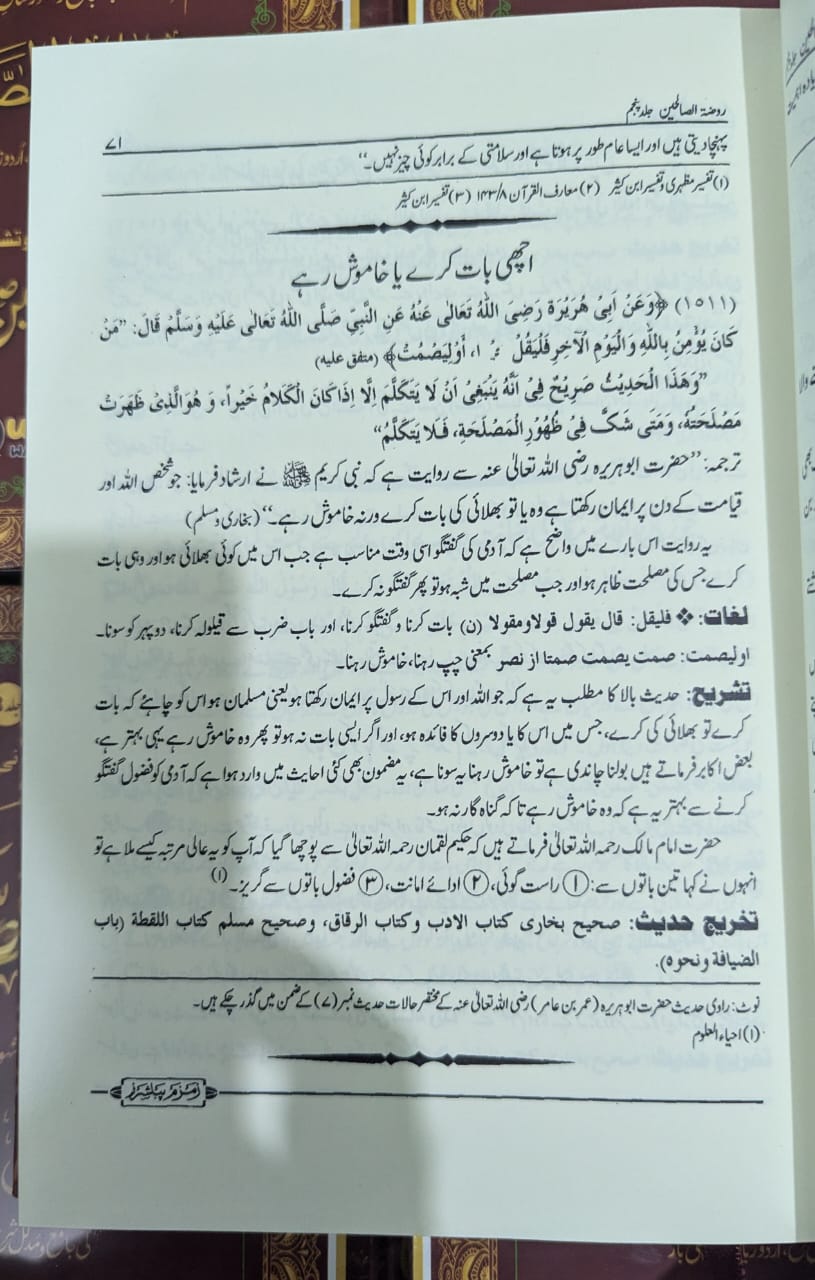 روضۃ الصالحین جلد پنجم
۷۱
پہنچا دیتی ہیں اور ایسا عام طور پر ہوتا ہے اور سلامتی کے برابر کوئی چیز نہیں۔‘‘
(۱) تفسیر مظہری و تفسیر ابن کثیر (۲) معارف القرآن ۱۴۳/۸ (۳) تفسیر ابن کثیر
اچھی بات کرے یا خاموش رہے
(١٥١١) ﴿وَعَنْ اَبِیْ هُرَيْرَةَ رَضِیَ اللّٰهُ تَعَالٰی عَنْهُ عَنِ النَّبِیِّ صَلَّی اللّٰهُ تَعَالٰی عَلَيْهِ وَسَلَّمَ قَالَ: ’’مَنْ
كَانَ يُؤْمِنُ بِاللّٰهِ وَالْيَوْمِ الْآخِرِ فَلْيَقُلْ أَوْلِيَصْمُتْ﴾ (متفق عليه)
’’وَهَذَا الْحَدِيْثُ صَرِيْحٌ فِیْ اَنَّهٗ يَنْبَغِیْ اَنْ لَا يَتَكَلَّمَ اِلَّا اِذَا كَانَ الْكَلَامُ خَيْراً، وَ هُوَ الَّذِیْ ظَهَرَتْ
مَصْلَحَتُهٗ، وَمَتٰی شَكَّ فِیْ ظُهُوْرِ الْمَصْلَحَةِ، فَلَا يَتَكَلَّمُ‘‘
ترجمہ: ’’حضرت ابوہریرہ رضی اللہ تعالیٰ عنہ سے روایت ہے کہ نبی کریم ﷺ نے ارشاد فرمایا: جو شخص اللہ اور
قیامت کے دن پر ایمان رکھتا ہے وہ یا تو بھلائی کی بات کرے ورنہ خاموش رہے۔‘‘ (بخاری و مسلم)
یہ روایت اس بارے میں واضح ہے کہ آدمی کی گفتگو اسی وقت مناسب ہے جب اس میں کوئی بھلائی ہو اور وہی بات
کرے جس کی مصلحت ظاہر ہو اور جب مصلحت میں شبہ ہو تو پھر گفتگو نہ کرے۔
لغات: ❖ فلیقل: قال یقول قولا ومقولا (ن) بات کرنا و گفتگو کرنا، اور باب ضرب سے قیلولہ کرنا، دوپہر کو سونا۔
اولیصمت: صمت یصمت صمتا از نصر بمعنی چپ رہنا، خاموش رہنا۔
تشریح: حدیث بالا کا مطلب یہ ہے کہ جو اللہ اور اس کے رسول پر ایمان رکھتا ہو یعنی مسلمان ہو اس کو چاہئے کہ بات
کرے تو بھلائی کی کرے، جس میں اس کا یا دوسروں کا فائدہ ہو، اور اگر ایسی بات نہ ہو تو پھر وہ خاموش رہے یہی بہتر ہے،
بعض اکابر فرماتے ہیں بولنا چاندی ہے تو خاموش رہنا یہ سونا ہے، یہ مضمون بھی کئی احایث میں وارد ہوا ہے کہ آدمی کو فضول گفتگو
کرنے سے بہتر یہ ہے کہ وہ خاموش رہے تاکہ گناہ گار نہ ہو۔
حضرت امام مالک رحمہ اللہ تعالیٰ فرماتے ہیں کہ حکیم لقمان رحمہ اللہ تعالیٰ سے پوچھا گیا کہ آپ کو یہ عالی مرتبہ کیسے ملا ہے تو
انہوں نے کہا تین باتوں سے: ① راست گوئی، ② ادائے امانت، ③ فضول باتوں سے گریز۔(۱)
تخریج حدیث: صحیح بخاری کتاب الادب وکتاب الرقاق، وصحیح مسلم کتاب اللقطة (باب
الضیافة ونحوه).
نوٹ: راوی حدیث حضرت ابوہریرہ (عمر بن عامر) رضی اللہ تعالیٰ عنہ کے مختصر حالات حدیث نمبر (۷) کے ضمن میں گذر چکے ہیں۔
(۱) احیاء العلوم
زمزم پبلشرز